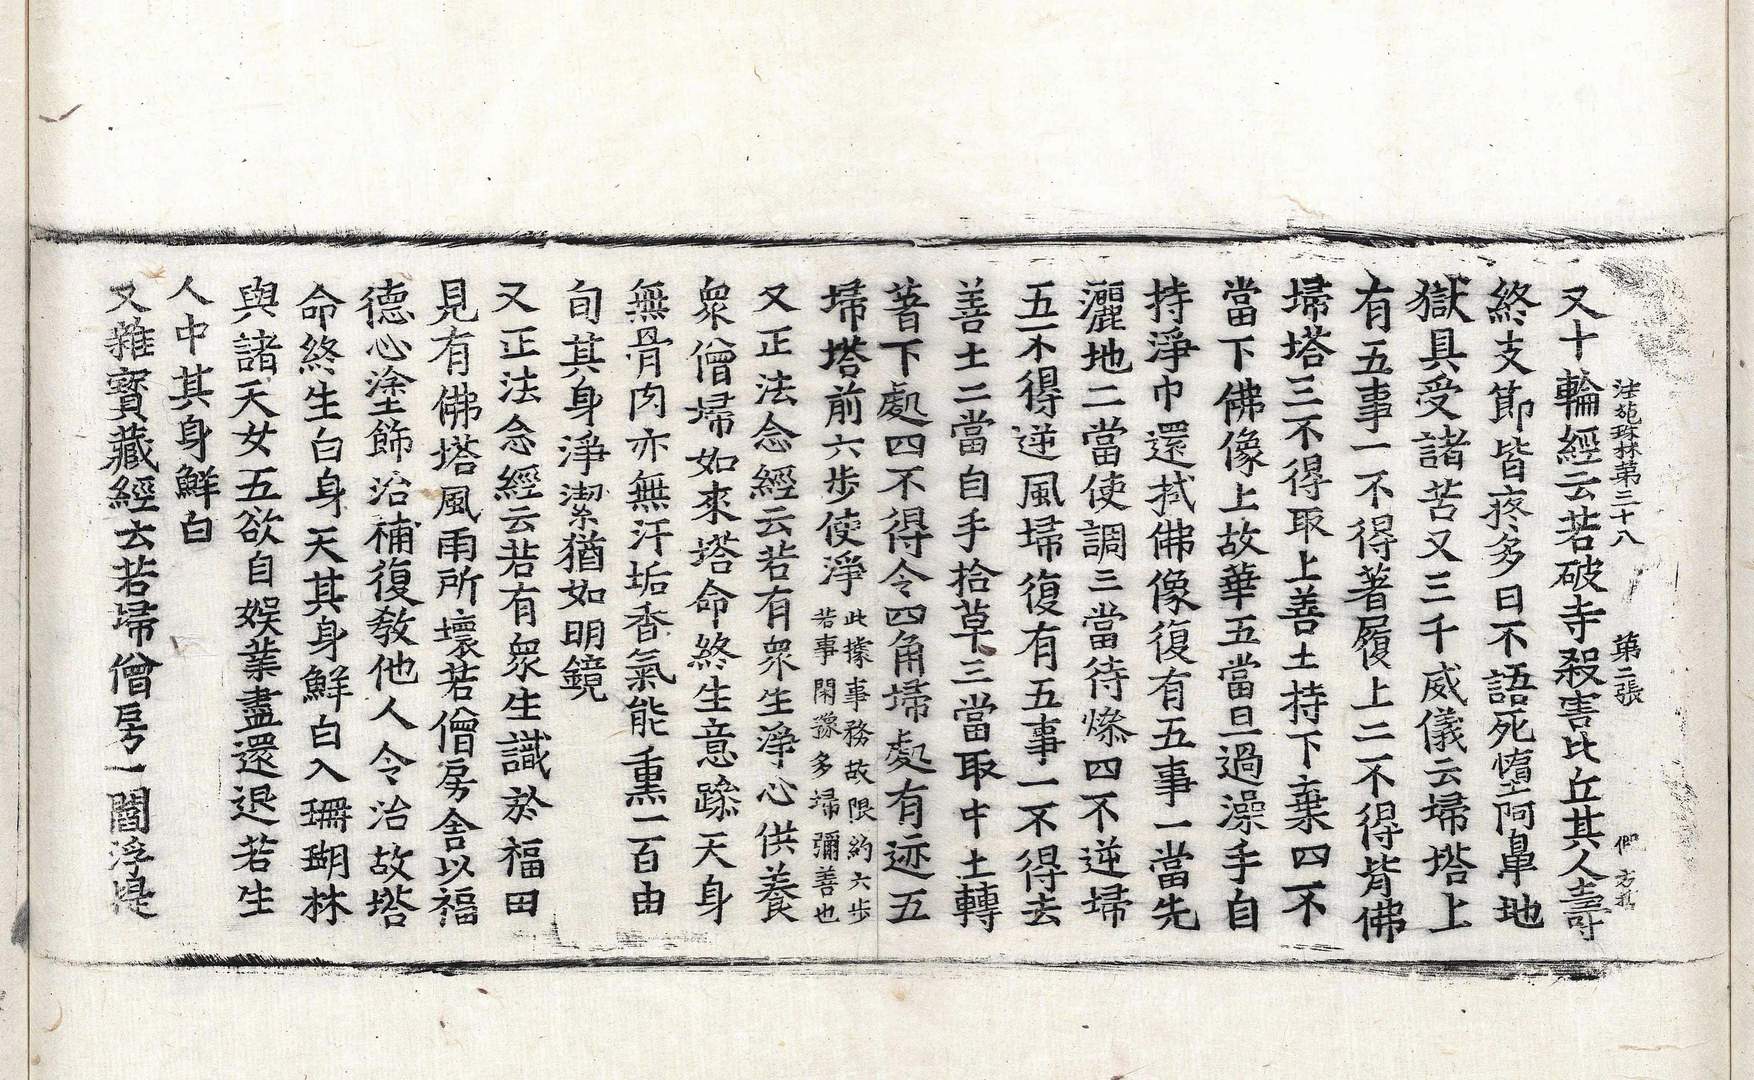 法苑珠林第三十八 第二張
又十輪經云若破寺殺害比丘其人壽
終支節皆疼多日不語死墮阿鼻地
獄具受諸苦又三千威儀云掃塔上
有五事一不得著履上二不得背佛
掃塔三不得取上善土持下棄四不
當下佛像上故華五當旦過澡手自
持淨巾還拭佛像復有五事一當先
灑地二當使調三當待燥四不逆掃
五不得逆風掃復有五事一不得去
善土二當自手拾草三當取中土轉
著下處四不得令四角掃處有迹五
掃塔前六步使淨 此據事務故限約六步
若事閑豫多掃彌善也
又正法念經云若有衆生淨心供養
衆僧掃如來塔命終生意躁天身
無骨肉亦無汗垢香氣能熏一百由
旬其身淨潔猶如明鏡
又正法念經云若有衆生識於福田
見有佛塔風雨所壞若僧房舍以福
德心塗飾治補復教他人令治故塔
命終生白身天其身鮮白入珊瑚林
與諸天女五欲自娛業盡還退若生
人中其身鮮白
又雜寶藏經云若掃僧房一閻浮提